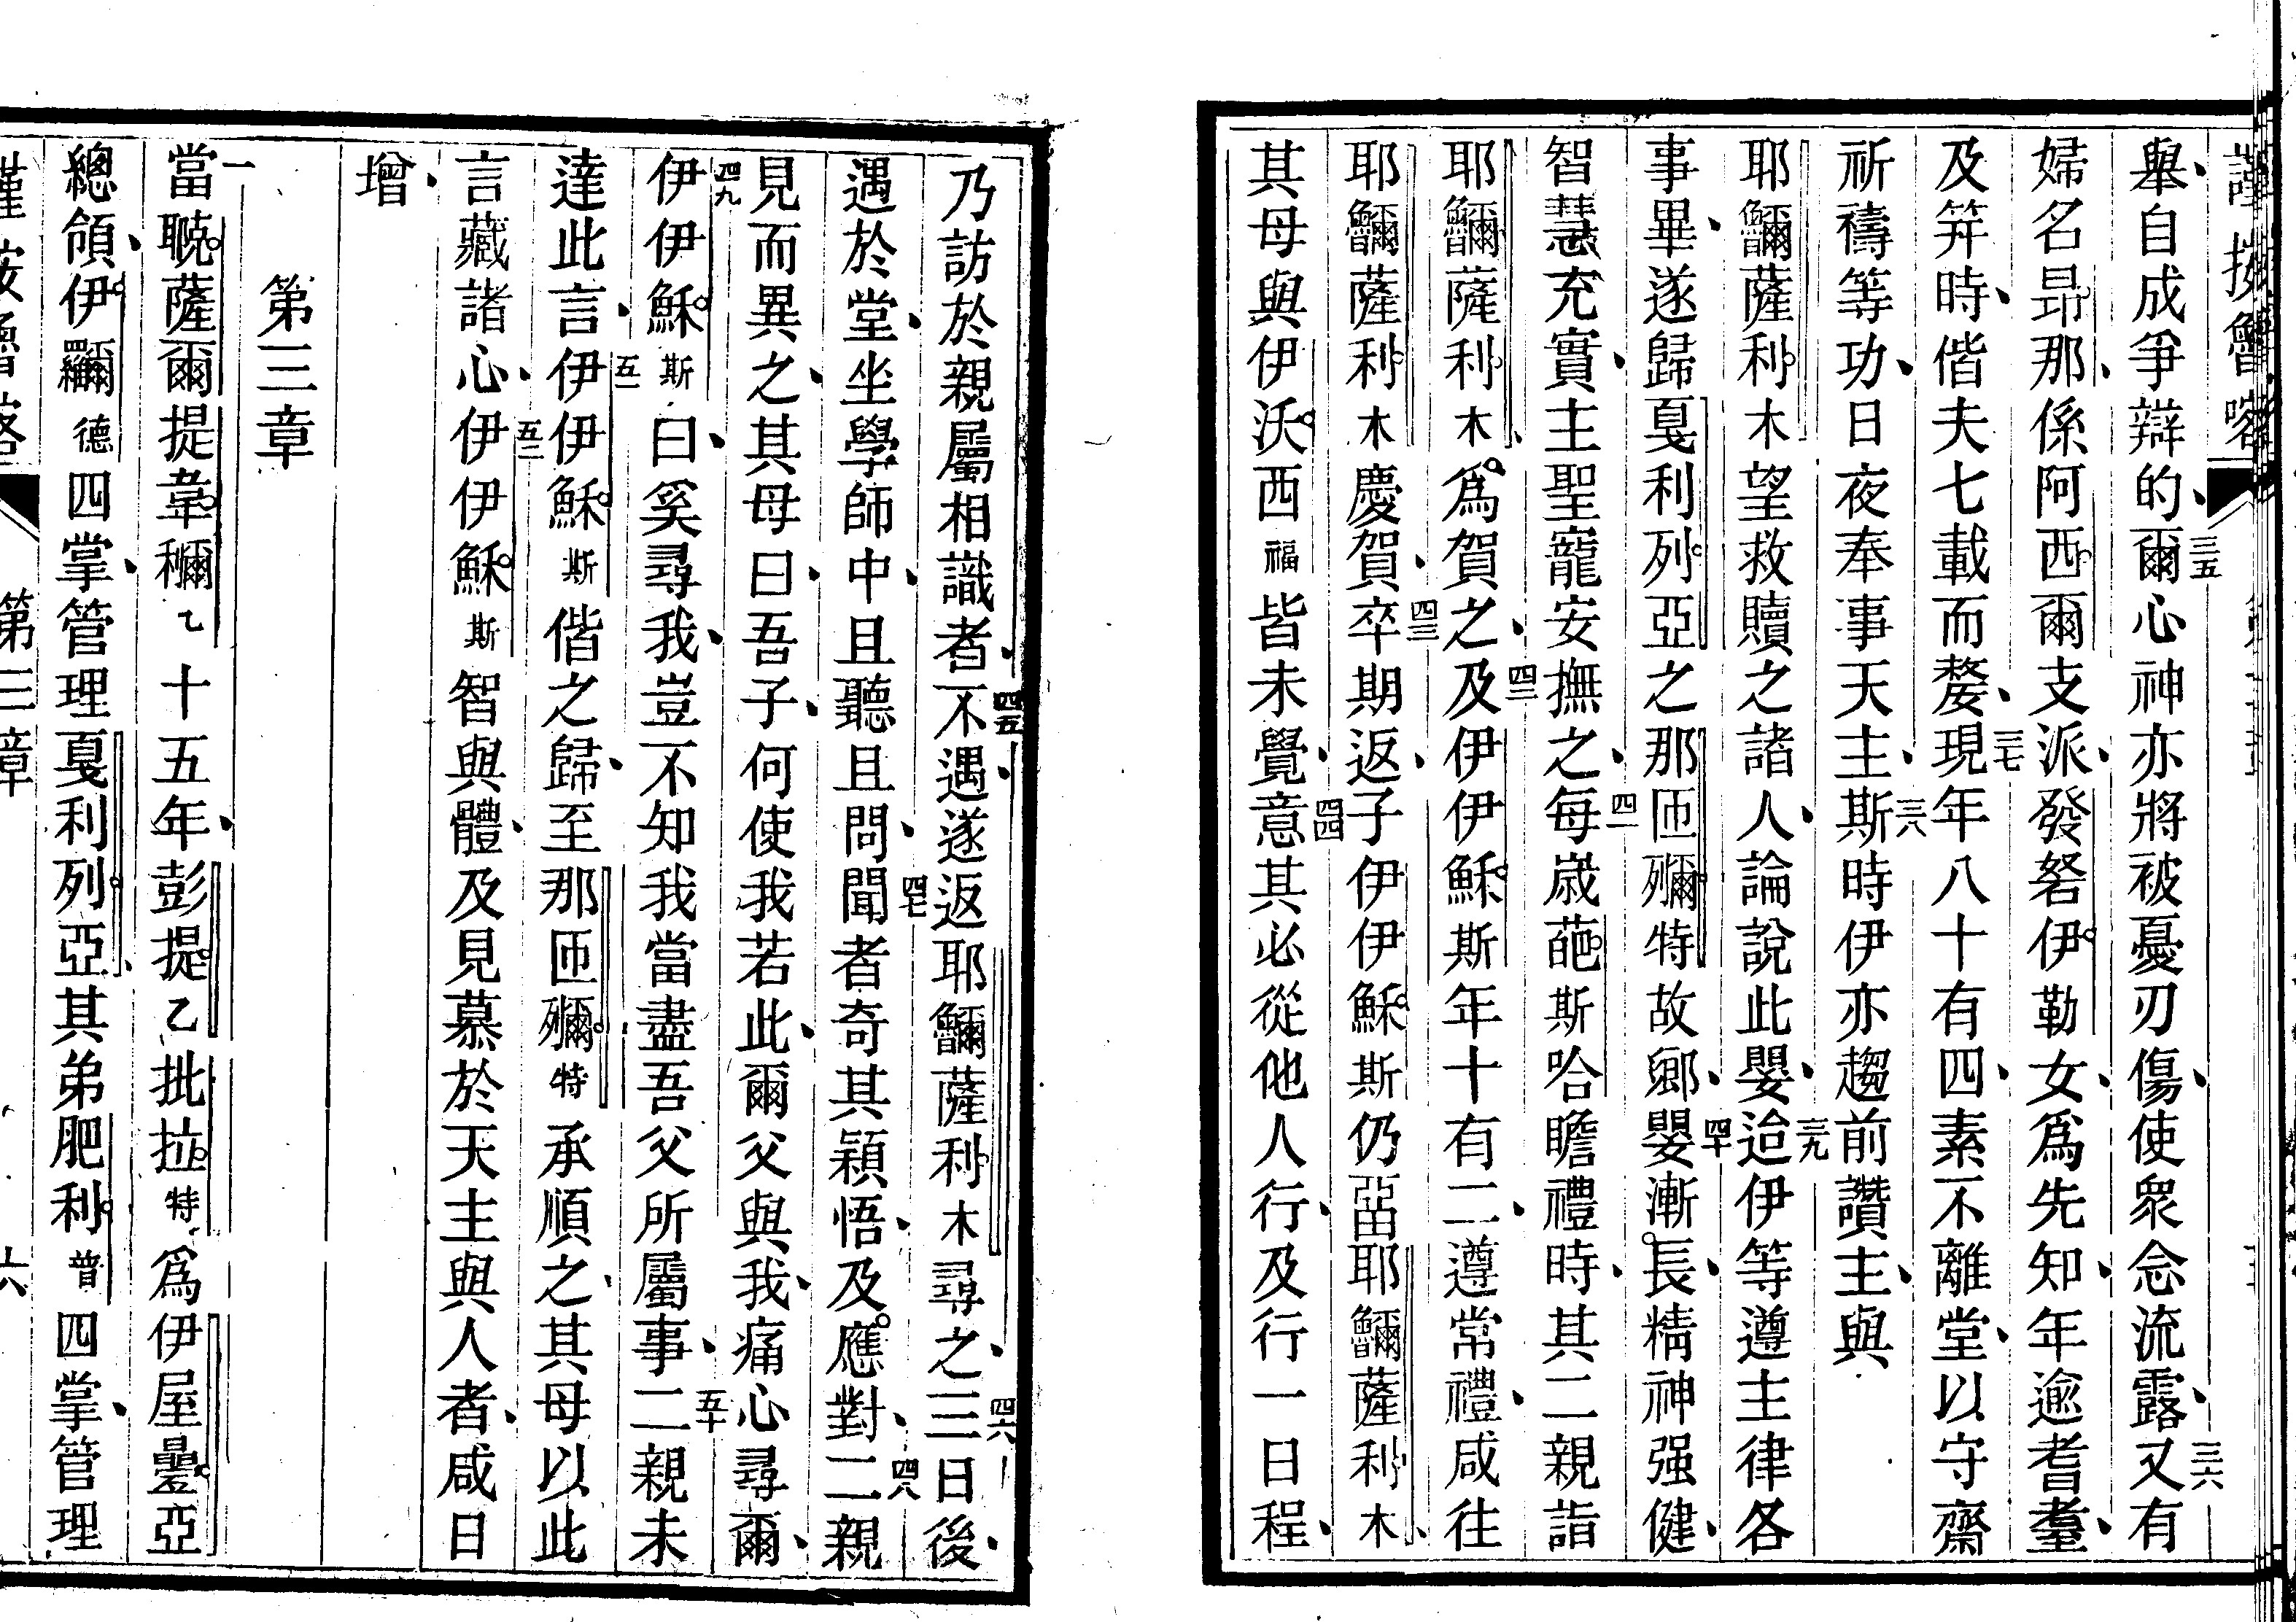 舉、自成爭辯的、三五爾心神亦將被憂刃傷、使眾念流露、三六又有
婦名昻那、係阿西爾支派、發砮伊勒女、爲先知、年逾耆耋、
及笄時、偕夫七載而嫠、三七現年八十有四、素不離堂、以守齋
祈禱等功、日夜奉事天主、三八斯時伊亦趨前讚主、與
耶薩利木望救贖之諸人、論說此嬰、三九迨伊等遵主律各
事畢、遂歸戛利列亞之那匝特故鄉、四十嬰漸長、精神强健、
智慧充實、主聖寵安撫之、四一每歲葩斯哈瞻禮時、其二親詣
耶薩利木、爲賀之、四二及伊伊穌斯年十有二、遵常禮、咸往
耶薩利木慶賀、四三卒期返、子伊伊穌斯仍畱耶薩利木、
其母與伊沃西福皆未覺、四四意其必從他人行、及行一日程、
乃訪於親屬相識者、四五不遇、遂返耶薩利木尋之、四六三日後、
遇於堂、坐學師中、且聽且問、四七聞者奇其穎悟、及應對、四八二親
見而異之、其母曰、吾子、何使我若此、爾父與我、痛心尋爾、
四九伊伊穌斯曰、奚尋我、豈不知我當盡吾父所屬事、五十二親未
達此言、五一伊伊穌斯偕之歸、至那匝特、承順之、其母以此
言藏諸心、五二伊伊穌斯智與體、及見慕於天主與人者、咸日
增、
第三章
一當聴薩爾提韋乙十五年、彭提乙批拉特爲伊屋疊亞
總領、伊德四掌、管理戛利列亞、其弟肥利普四掌、管理
第三章
六